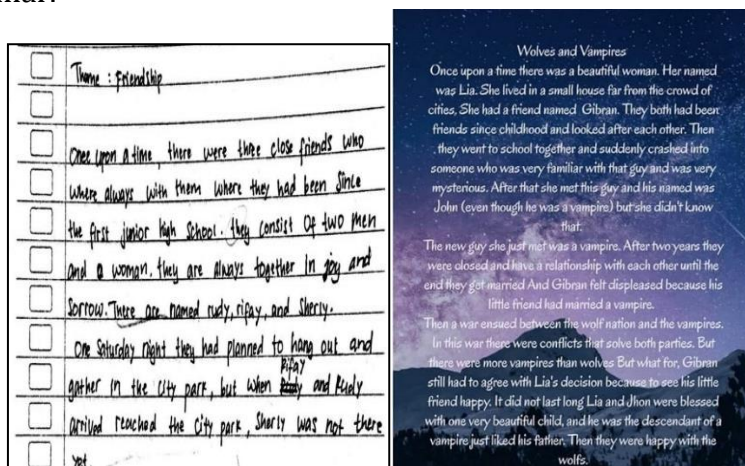 Theme : Friendship
Once upon a time, there were three close friends who
where always with them where they had been since
the first junior high school. they consist of two men
and a woman. they are always together in joy and
sorrow. There are named rudy, rifay, and Sherly.
One Saturday night they had planned to hang out and
gather in the city park, but when Rifay and Rudy
arrived reached the city park, Sherly was not there
yet.
Wolves and Vampires
Once upon a time there was a beautiful woman. Her named
was Lia. She lived in a small house far from the crowd of
cities, She had a friend named Gibran. They both had been
friends since childhood and looked after each other. Then
, they went to school together and suddenly crashed into
someone who was very familiar with that guy and was very
mysterious. After that she met this guy and his named was
John (even though he was a vampire) but she didn't know
that.
The new guy she just met was a vampire. After two years they
were closed and have a relationship with each other until the
end they get married And Gibran felt displeased because his
little friend had married a vampire.
Then a war ensued between the wolf nation and the vampires.
In this war there were conflicts that solve both parties. But
there were more vampires than wolves But what for, Gibran
still had to agree with Lia's decision because to see his little
friend happy. It did not last long Lia and Jhon were blessed
with one very beautiful child, and he was the descendant of a
vampire just liked his father, Then they were happy with the
wolfs.